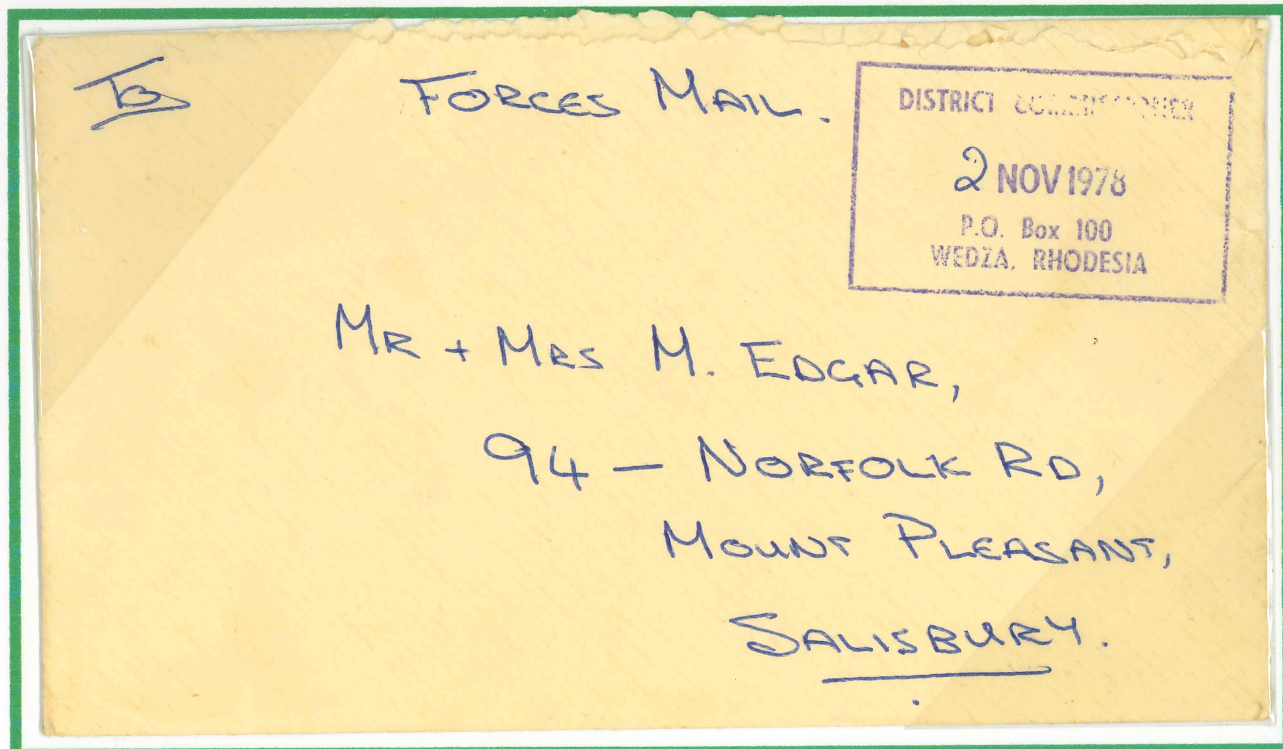 To FORCES MAIL.
DISTRICT COMMISSIONER
2 NOV 1978
P.O. Box 100
WEDZA, RHODESIA
MR + MRS M. EDGAR,
94 — NORFOLK RD,
MOUNT PLEASANT,
SALISBURY.